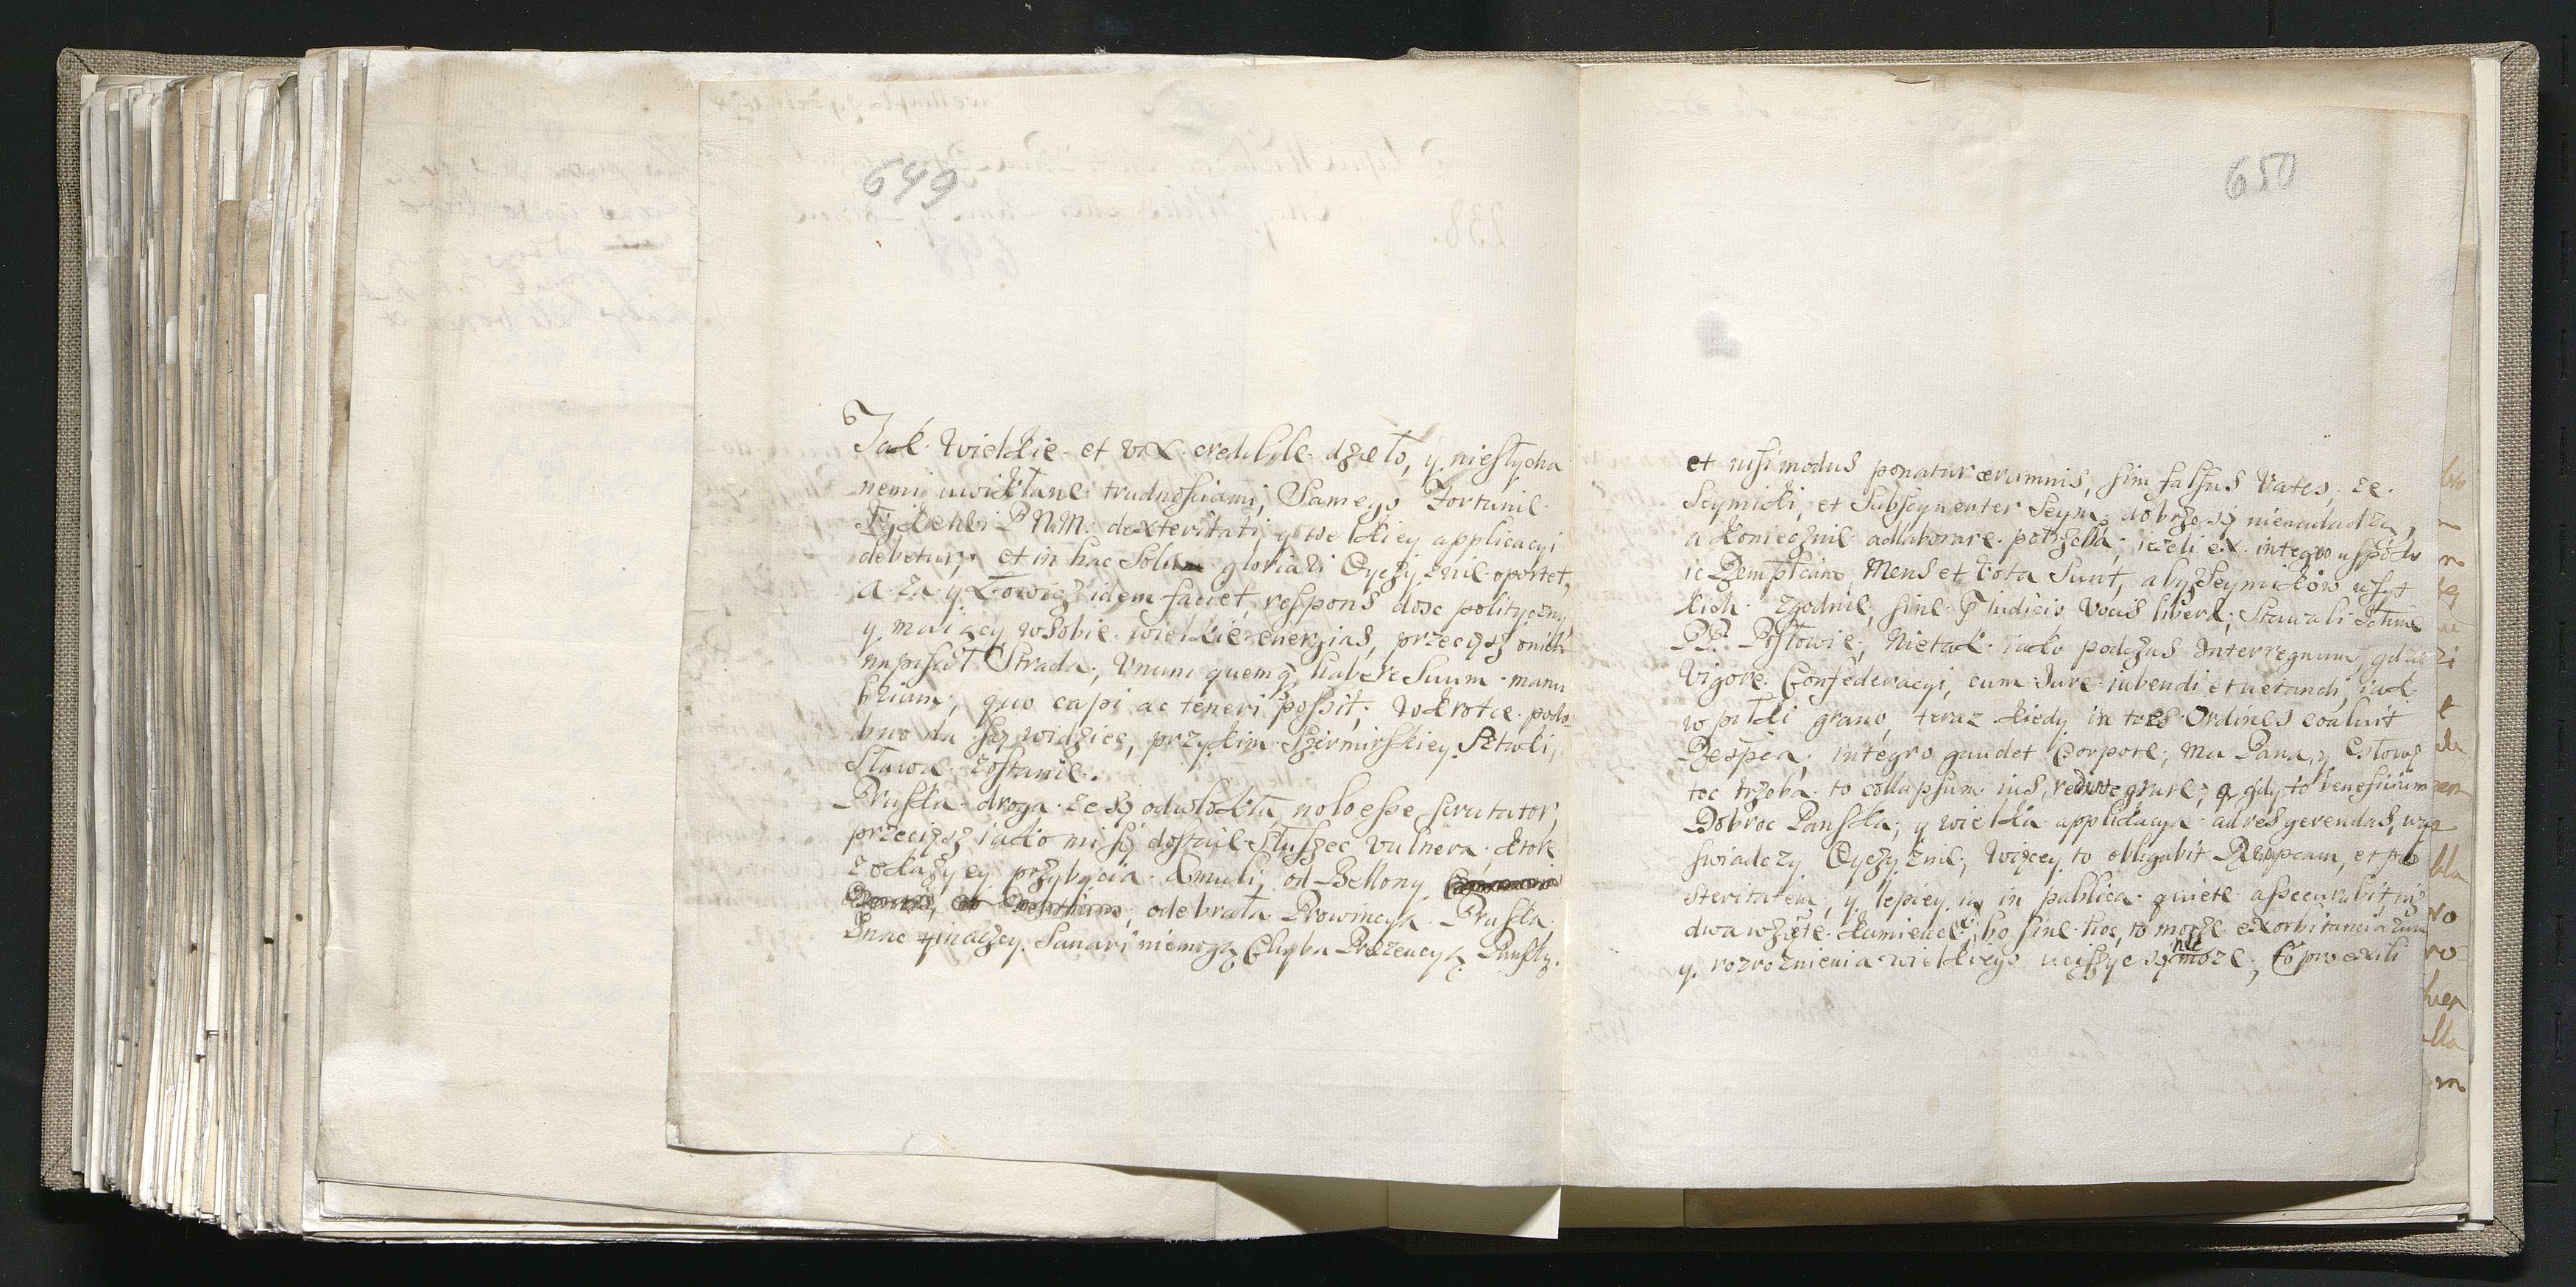 649
Jak wielkie et vix credibile dzieło, y niesłycha
nemi uwikłane trudnosciami, Samego Fortunie
Tylkehbi P N M: dexteritati y wielkiey applicacyi
debetur, et in hac Sola gloriari Oyczyznie oportet,
a za y Łowicz idem faciet, respons dosc polityczny
y maiący wsobie wielkie energias, przecięsz onich
napisał Strada, Unum quemq3 habere Suum manu
brium, quo capi ac teneri possit; wkrotce podo
bno da się widziec, przykim Szermirskiey Sztuki,
Sława zostanie.
Pruska droga ze się odwlokła nolo esse scrutator,
przecięsz iako misię dostaie słyszec vulnera, ktore
z okazyey przybycia Æmuli, od Bellony
odebrała Prowincya Pruska,
inaczey Sanari niemogą Chyba Prezencyą Panską.
650
et nisi modus ponatur ærumnis, sim falsus Vates, ze
Seymiki, et Subsequenter Seym, dobrze się nienadadzą,
a koniecznie adlaborare potrzeba, iezeli ex integro uspoko
ic Rempcam, Mens et Vota Sunt, aby Seymikow wszyt
kich zgodnie, sine Pludicio Vocis liberæ, Stawali Sobie
PP. Posłowie, Nietak iako podczas Interregnum, gdzie
Vigore Confederacyi, cum Iure iubendi et uetandi, iak
w piłki grano, teraz kiedy in tres Ordines coaluit
Respca, integro gaudet Corpore, ma Pana, y Głowę
toc trzeba to collapsum ius, redintegrare, gdy to beneficium
Dobroc Panska, y wielka applikacya ad res gerendas, wy
swiadczy Oyczyznie, więcey to obligabit Rempcam, et po
steritatem, y lepiey ią in publica quiete assecurabit, niz
dwa wzięte Kamience, bo sine hoc, to morze exorbitancia rum
y rozroznienia wielkiego uciszyc się nie moze, Co pro exili